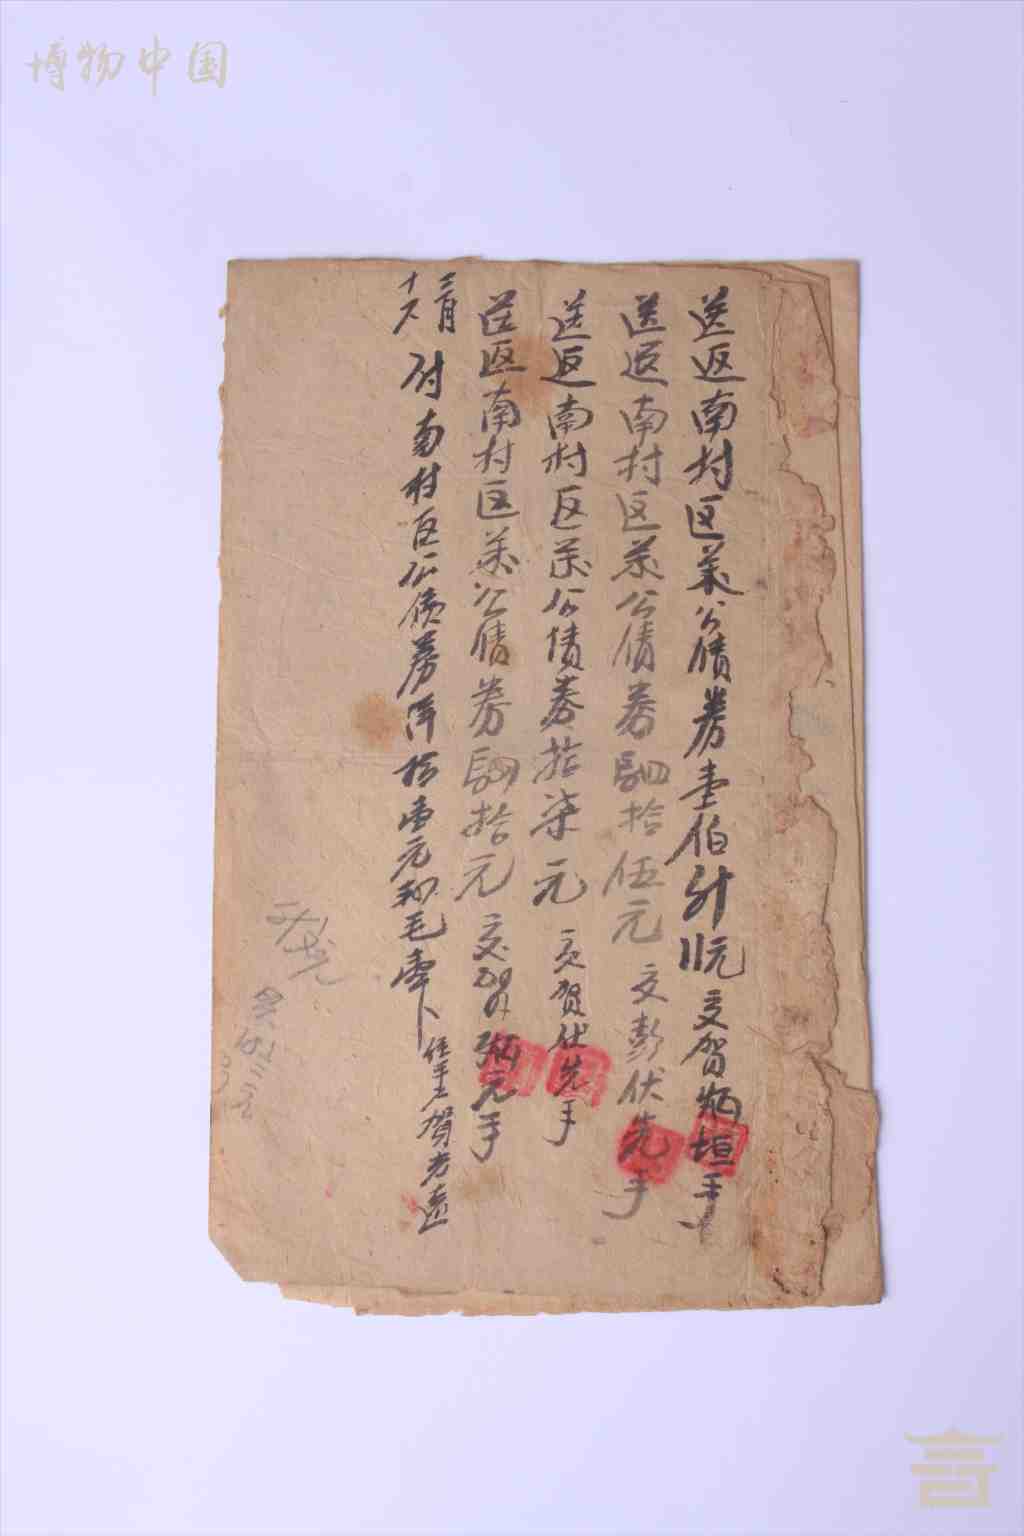 博物中国
送返南村区苏公债券壹伯卅八元 交贺炳垣手
送返南村区苏公债券駟拾伍元 交彭伏先手
送返南村区苏公债券拾柒元 交贺伏先手
送返南村区苏公债券駟拾元 交贺炳元手
三月十八 付南村区公债券洋拾壹元 毛壹 任手 贺方远